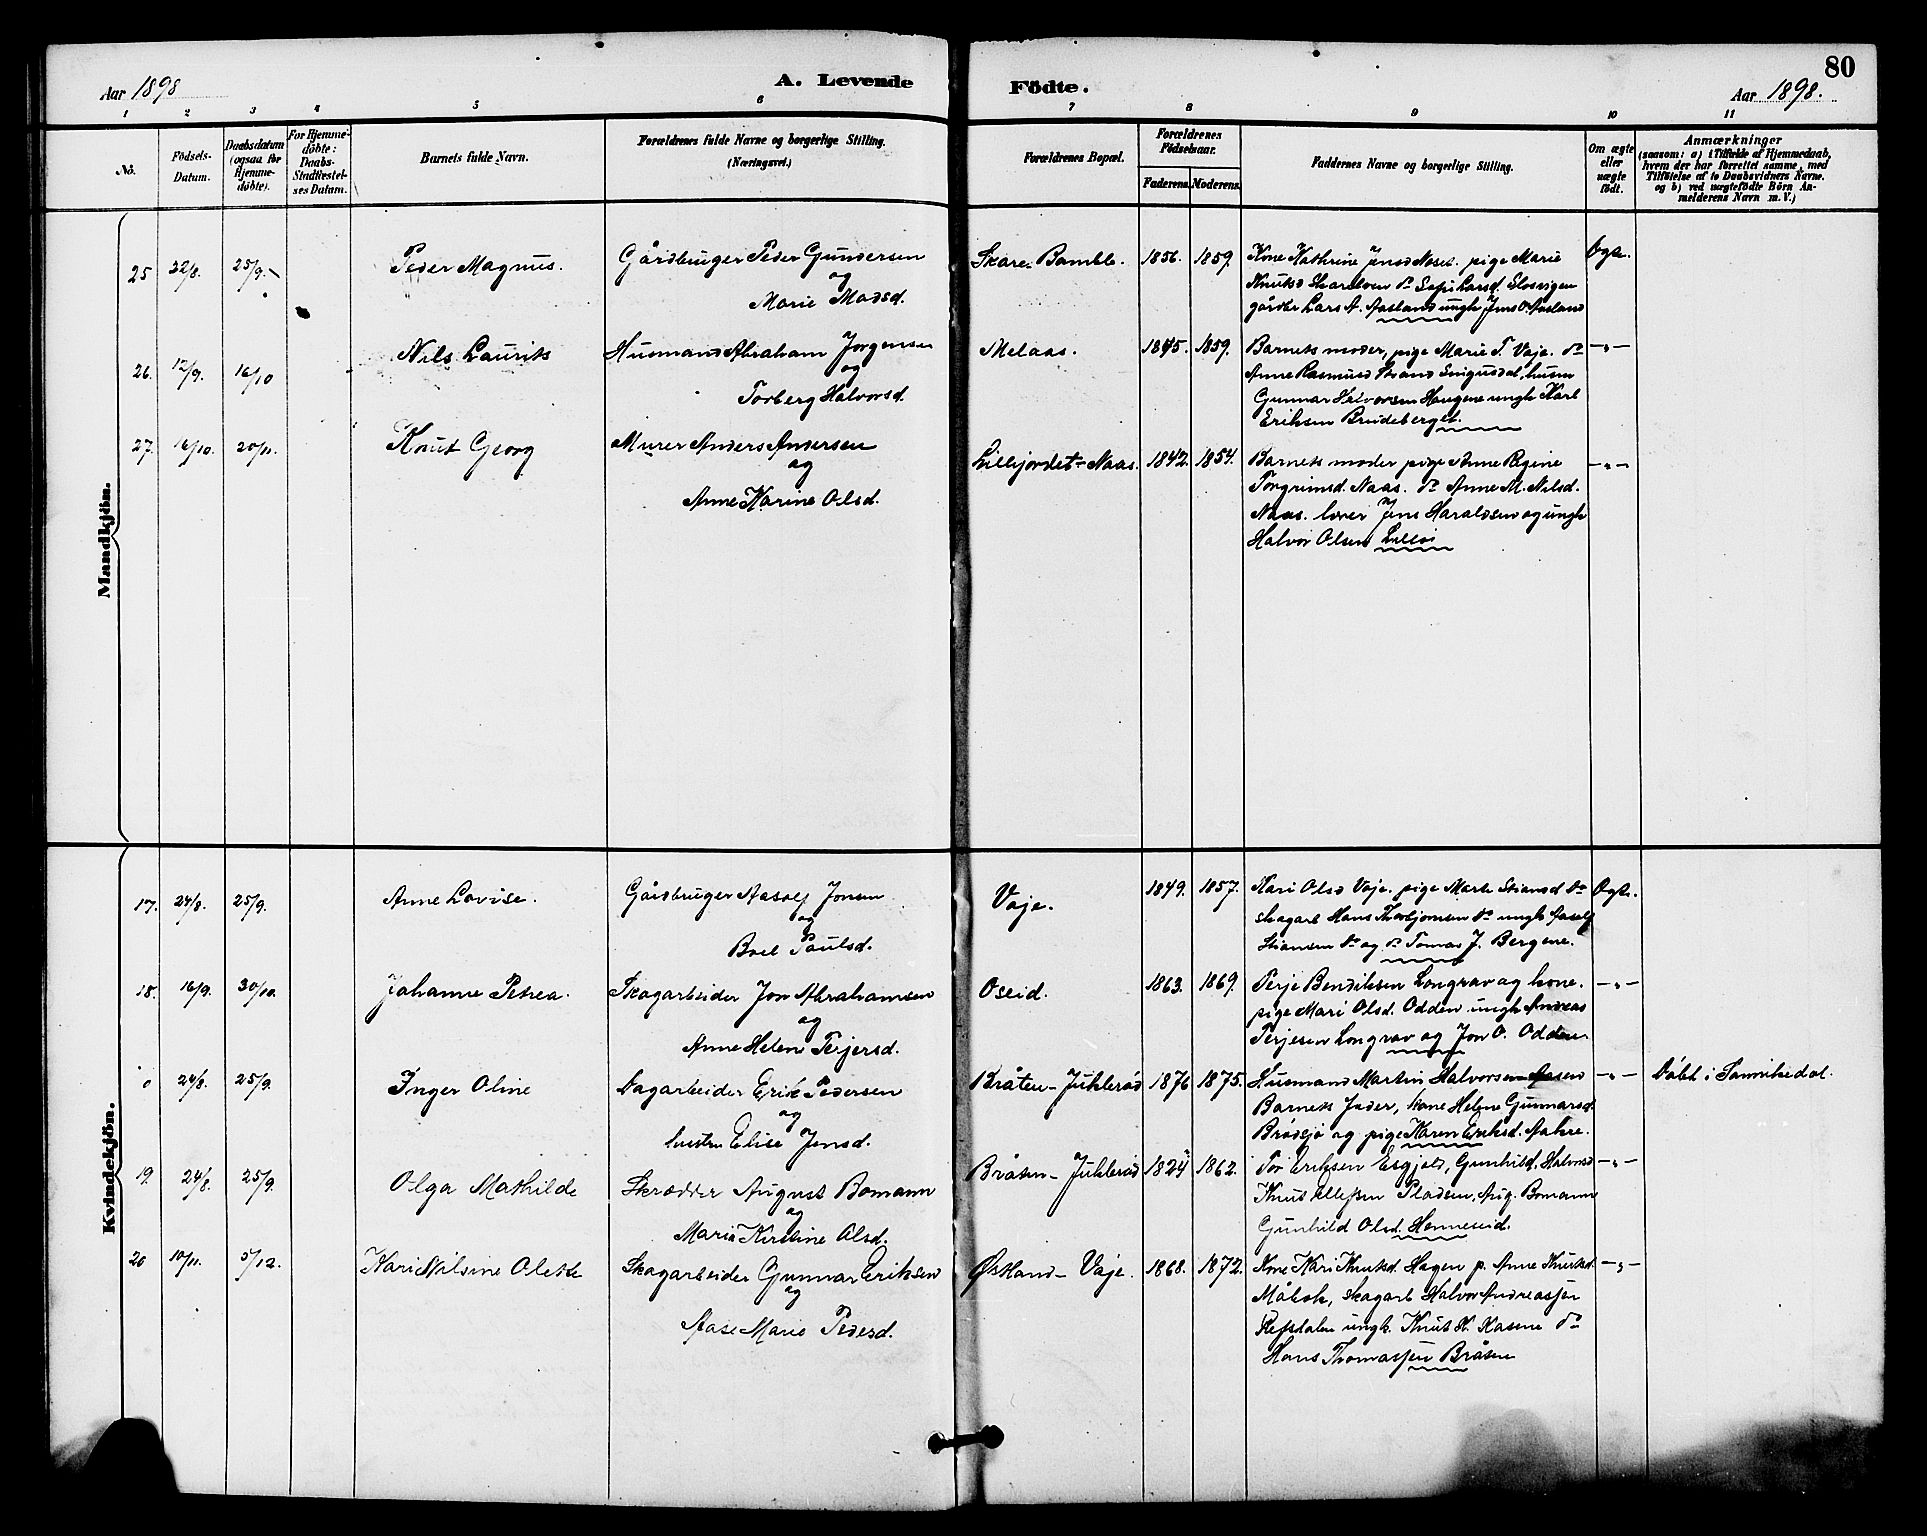 Aar 1898
A. Levende Födte.
Aar 1898.
80
1 2 3 4 5 6 7 8 9 10 11
No.
Födsels-Datum.
Daabsdatum (ogsaa for Hjemme-döbte).
For Hjemme-döbte: Daabs-Stadfæstel-ses Datum.
Barnets fulde Navn.
Forældrenes fulde Navne og borgerlige Stilling. (Næringsvei.)
Forældrenes Bopæl.
Forældrenes Födselsaar.
Faderens. Moderens.
Faddernes Navne og borgerlige Stilling.
Om ægte eller uægte födt.
Anmærkninger
(saasom: a) i Tilfælde af Hjemmedaab,
hvem der har forrettet samme, med
Tilföielse af to Daabsvidners Navne.
og b) ved uægtefödte Börn An-
melderens Navn m. V.)
Mandkjön.
25 22/8. 25/9. Peder Magnus. Gårdbruger Peder Gundersen
og
Marie Madsd.
Skare-Bamble. 1856. 1859. Kone Kathrine Jensd Naset. pige Marie
Knutsd Larsd.
gårdbr Lars A. Aasland ungk Jens O. Aasland
Ægte.
26. 12/9. 16/10 Nils Laurits Husmand Abraham Jorgensen
og
Torberg Halvorsd.
Melaas. 1845. 1859. Barnets moder, pige Marie T. Vaje. do
Anne Rasmusd Strand husm
Gunnar Halvorsen Haugene ungk Karl
Eriksen Brudeberget.
-"-
27. 16/10. 20/11. Knut Georg Murer Anders Andersen
og
Anne Karine Olsd.
Lillejordet-Naas. 1842. 1854. Barnets moder pige Anne Regine
Torgrimsd. Naas. do Anne M. Nilsd.
Naas. Jens Haraldsen og ungk
Halvor Olsen
-"-
Kvindekjön.
17. 24/8. 25/9. Anne Lovise. Gårdbruger Aasolf Jonsen
og
Boel Paulsd.
Vaje. 1849. 1857. Kari Olsd Vaje. pige Marte Stiansd do
skogarb Hans Thorbjornsen do ungk Aasolf
Stiansen do og do Tomas J. Bergene.
Ægte.
18. 16/9. 30/10. Johanne Petrea. Skogarbeider Jon Abrahamsen
og
Anne Helene Terjersd.
Oseid. 1863. 1869. Terje Bendiksen Longrav og kone.
pige Mari Olsd. Odden ungk Andreas
Terjesen Longrav og Jon O. Odden
-"-
0 24/8. 25/9. Inger Oline Dagarbeider Erik Pedersen
og
hustru Elise Jensd.
Bråten-Juklerød 1876 1875. Husmand Martin Halvorsen Aasen
Barnets fader, kone Helene Gunnarsd.
Brødsjø og pige Karen Eriksd. Aakre.
-"- Døbt i Sannikedal.
19. 24/8. 25/9. Olga Mathilde Skrædder August Bomann
og
Maria Kirstine Olsd.
Bråten-Juklerød 1824 1862. Tor Eriksen Gunhild Halvorsd
Knut Ellefsen Pladsen, Aug. Bomann
Gunhild Olsd. Henneseid.
-"-
20 10/11. 5/12. Kari Nilsine Olette Skogarbeider Gunnar Eriksen
og
Aase Marie Pedersd.
Østland-Vaje. 1868. 1872. Kone Kari Knutsd. Hagen p. Anne Knutsd.
skogarb Halvor Andreassen
ungk. Knut H. Kasene do
Hans Thomassen Bråten
-"-